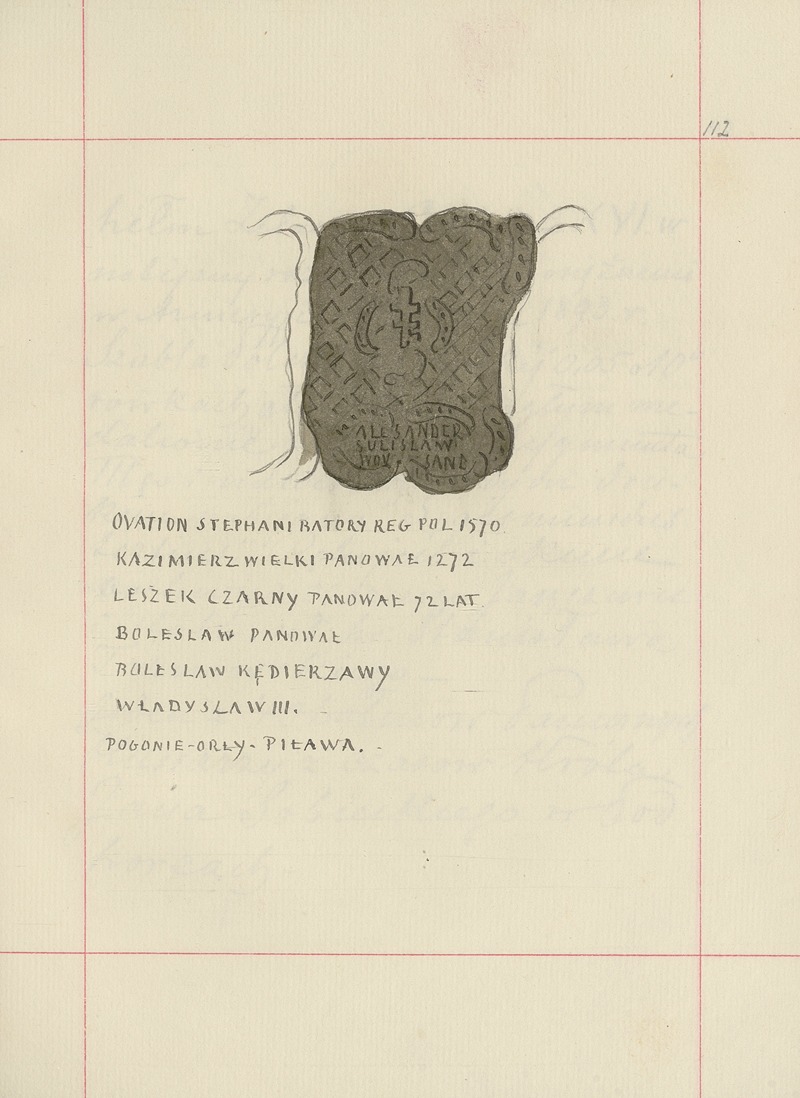 112
ALEXANDER
SULISLAW
WOY. SAND
OVATION STEPHANI BATORY REG POL 1570.
KAZIMIERZ WIELKI PANOWAŁ 1272
LESZEK CZARNY PANOWAŁ 72 LAT.
BOLESLAW PANOWAŁ
BOLESLAW KĘDIERZAWY
WŁADYSLAW III.
POGONIE-ORŁY-PIŁAWA. -